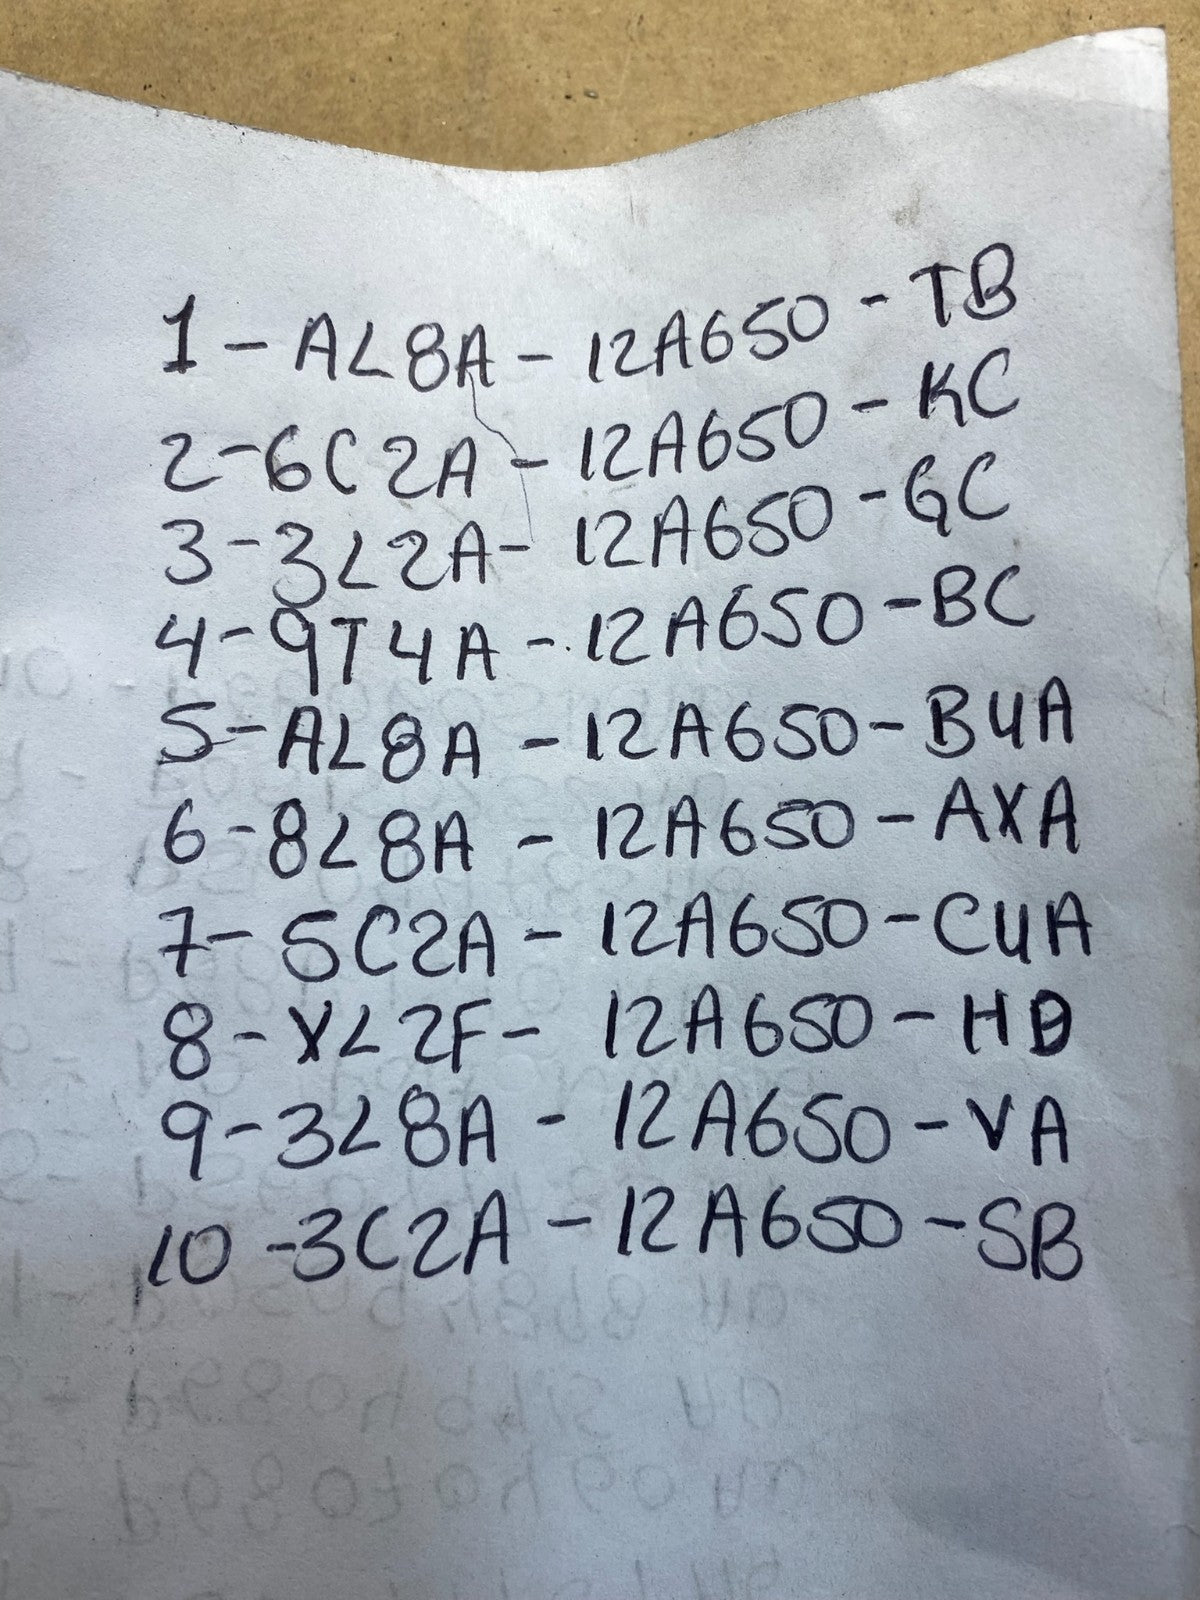 1 - AL8A - 12A650 - TB
2 - 6C2A - 12A650 - KC
3 - 3L2A - 12A650 - GC
4 - 9T4A - 12A650 - BC
5 - AL8A - 12A650 - BUA
6 - 8L8A - 12A650 - AXA
7 - 5C2A - 12A650 - CUA
8 - XL2F - 12A650 - HD
9 - 3L8A - 12A650 - VA
10 - 3C2A - 12A650 - SB